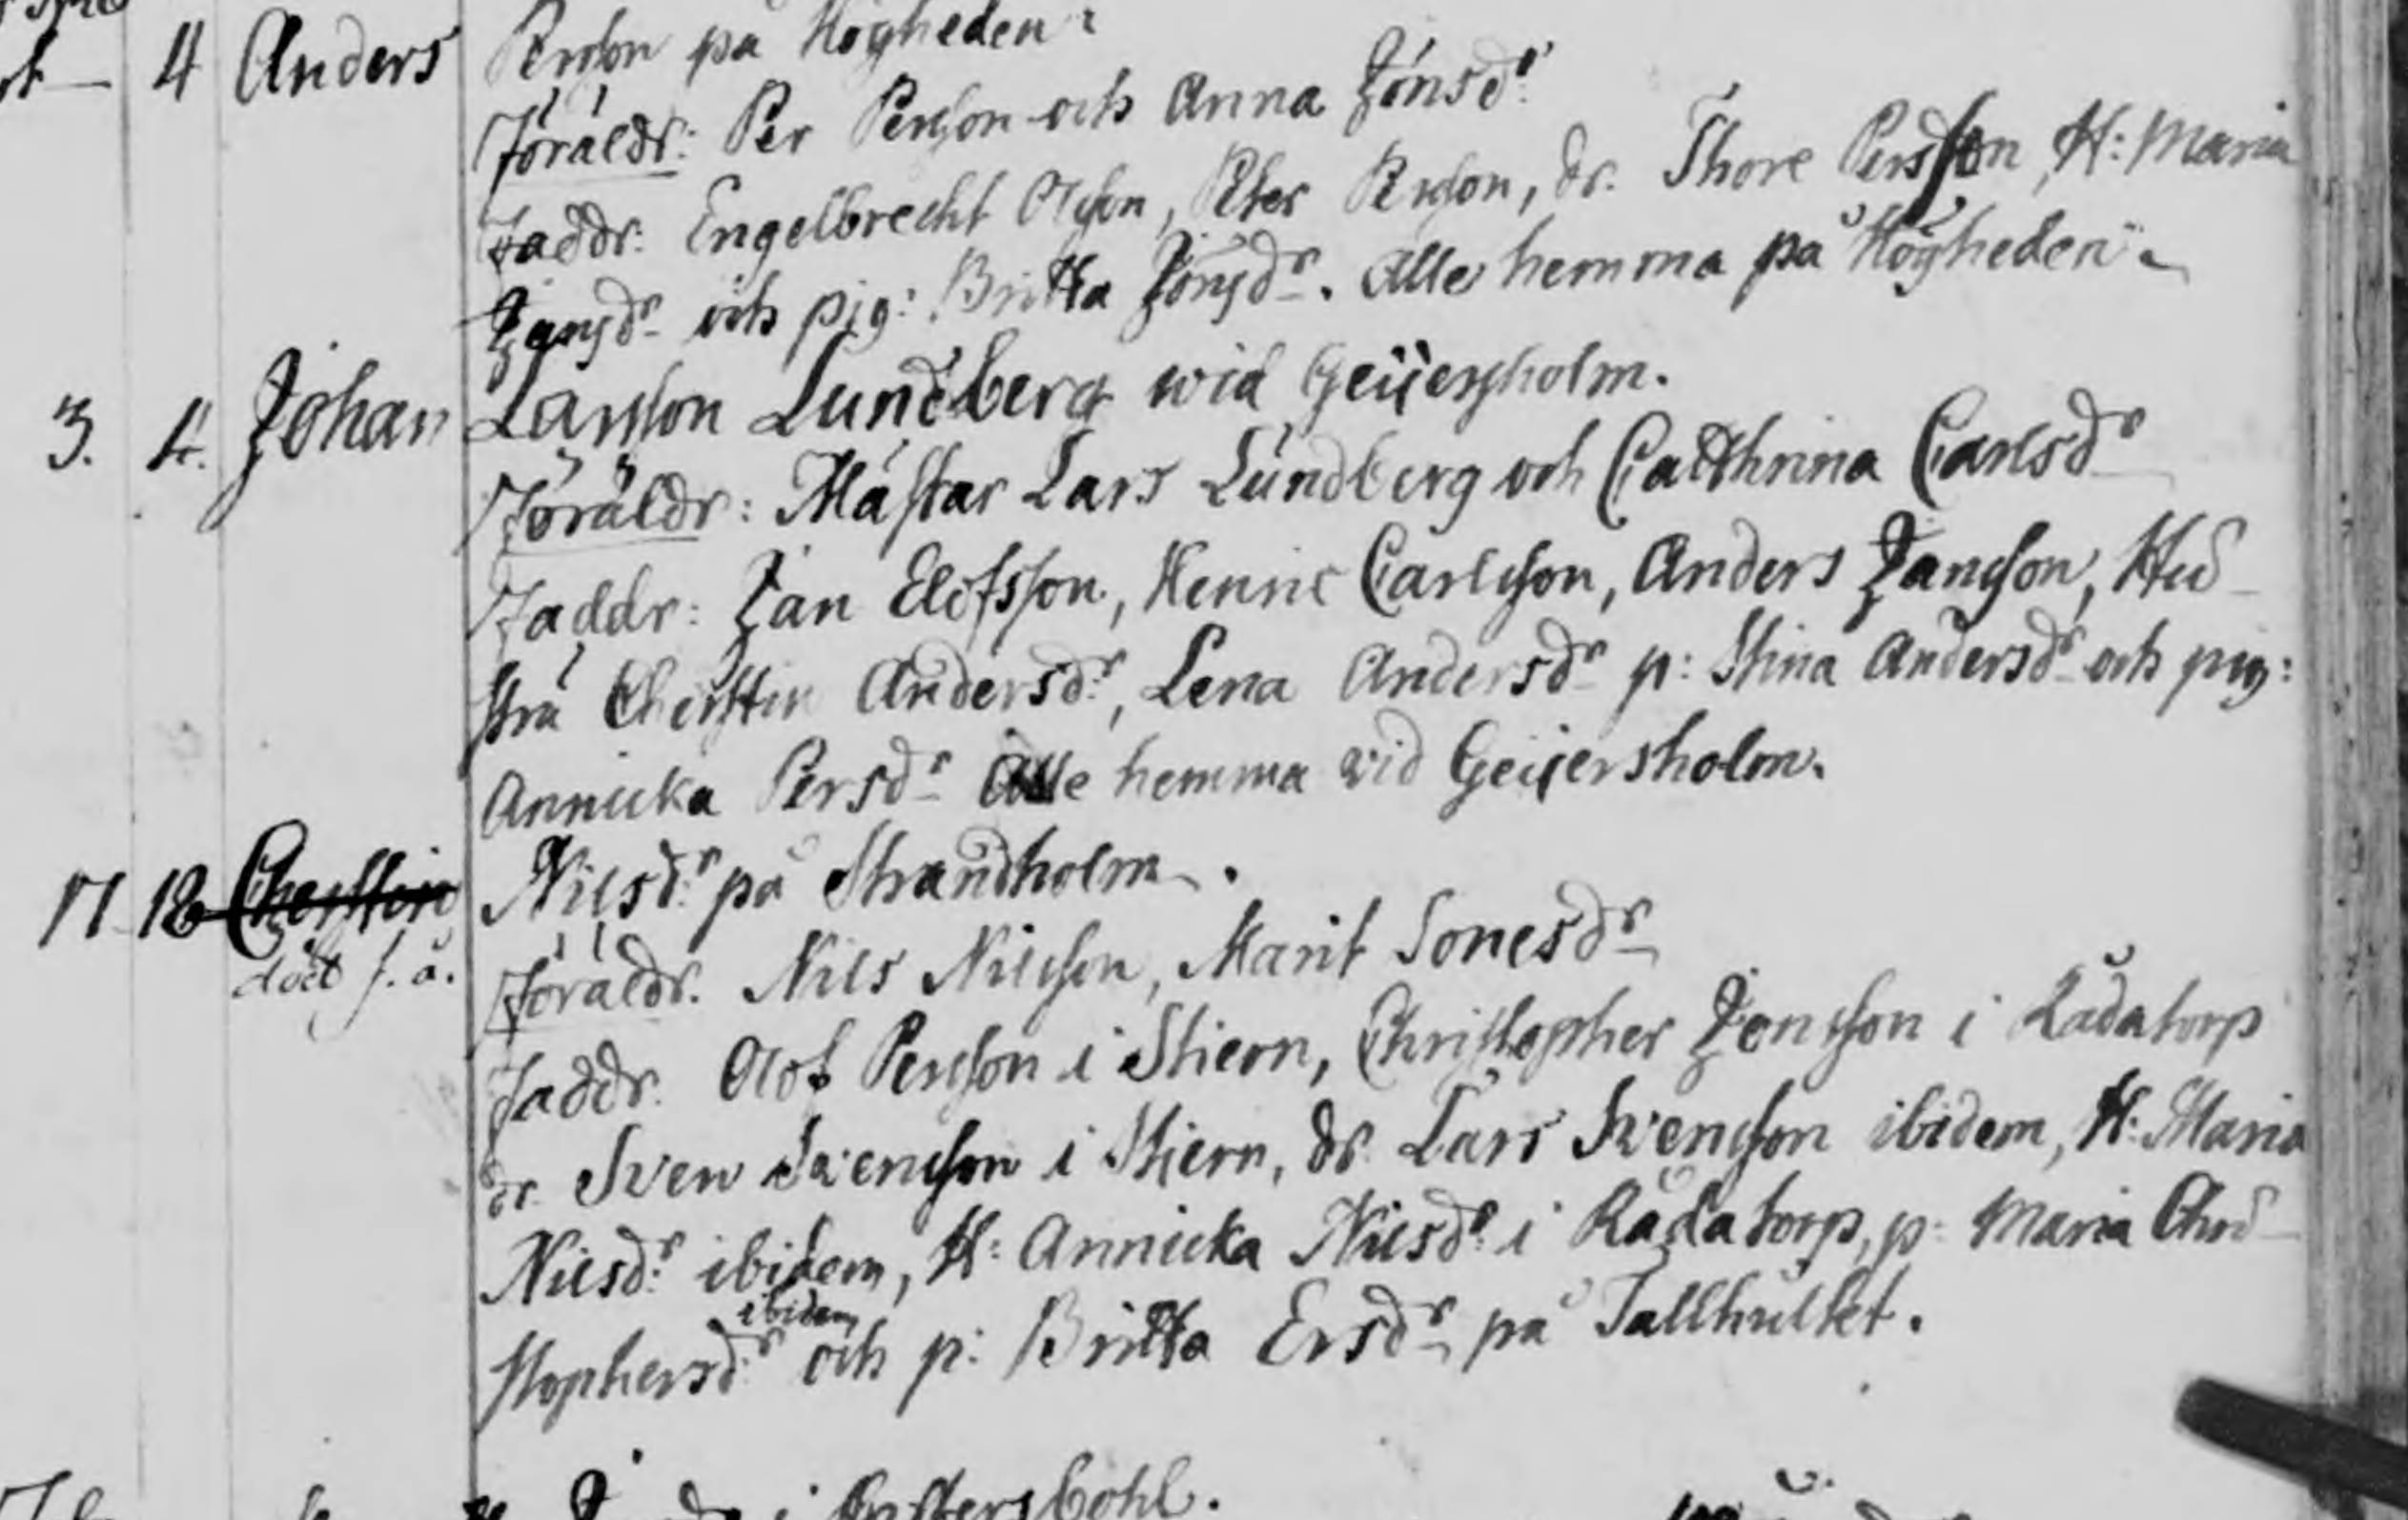 4 Anders Person på Högheden.
Föräldr: Per Person och Anna Jönsdr
Faddr: Engelbrecht Olsson, Peter Person, dr. Thore Persson, H: Maria
Jansdr och pig: Britta Jönsdr. Alle hemma på Högheden.
3. 4. Johan Larsson Lundberg wid Geijersholm.
Föräldr: Mästar Lars Lundberg och Catthrina Carlsdr
Faddr: Jan Elofsson, Henric Carlsson, Anders Jansson, Hu-
stru Cherstin Andersdr, Lena Andersdr p: Stina Andersdr och pig:
Annicka Persdr Alle hemma vid Geijersholm.
17 18 Cherstin Nilsdr på Strandholm.
död s. å.
Föräldr. Nils Nilsson, Marit Jonesdr
Faddr. Olof Person i Stiern, Christopher Jonsson i Rådatorp
dr. Sven Svensson i Stiern, dr. Lars Svensson ibidem, H: Maria
Nilsdr ibidem, H: Annicka Nilsdr i Rådatorp, p: Maria Chri-
stophersdr ibidem och p: Britta Ersdr på Tallhultet.